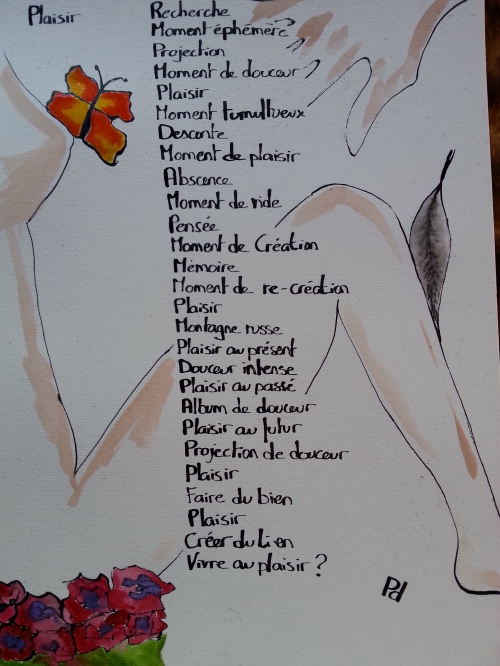 Plaisir
Recherche
Moment éphémère
Projection
Moment de douceur
Plaisir
Moment tumultueux
Descente
Moment de plaisir
Abscence
Moment de vide
Pensée
Moment de Création
Mémoire
Moment de re-création
Plaisir
Montagne russe
Plaisir au présent
Douceur intense
Plaisir au passé
Album de douceur
Plaisir au futur
Projection de douceur
Plaisir
Faire du bien
Plaisir
Créer du lien
Vivre au plaisir ?
Pd